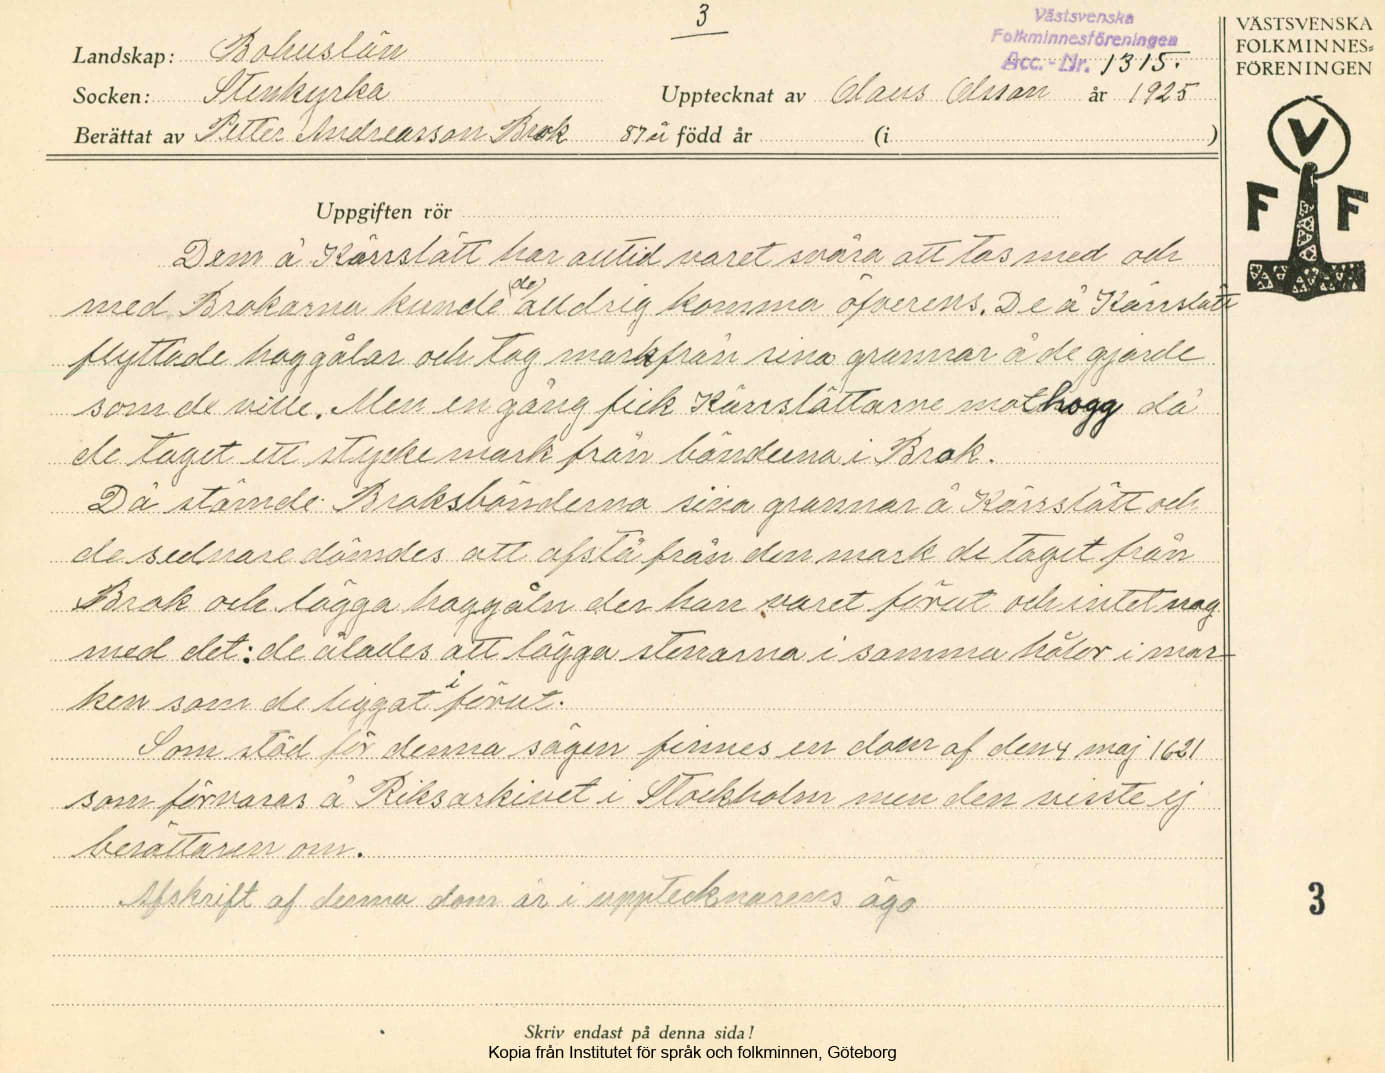 3
Västsvenska
Folkminnesföreningen
Acc.-Nr. 1315.
VÄSTSVENSKA
FOLKMINNES=
FÖRENINGEN
V
F F
Landskap: Bohuslän
Socken: Stenkyrka Upptecknat av Olaus Olsson år 1925
Berättat av Petter Andreasson Brok 87 år född år (i )
Uppgiften rör
Dem å Kärrslätt har alltid varet svåra att tas med och
med Brokarna kunde (de) alldrig komma öfverens. De å Kärrslätt
flyttade haggålar och tog mark från sina grannar å de gjorde
som de ville. Men en gång fick Kärrslättarne mothogg då
de taget ett stycke mark från bönderna i Brok.
Då stämde Broksbönderna sina grannar å Kärrslätt och
de sednare dömdes att afstå från den mark de taget från
Brok och lägga haggåln der han varet förut och intet nog
med det: de ålades att lägga stenarna i samma hålor i mar-
ken som de liggat i förut.
Som stöd för denna sägen finnes en dom af den 4 maj 1621
som förvaras å Riksarkivet i Stockholm men den visste ej
berättaren om.
Afskrift af denna dom är i upptecknarens ägo
3
Skriv endast på denna sida!
Kopia från Institutet för språk och folkminnen, Göteborg